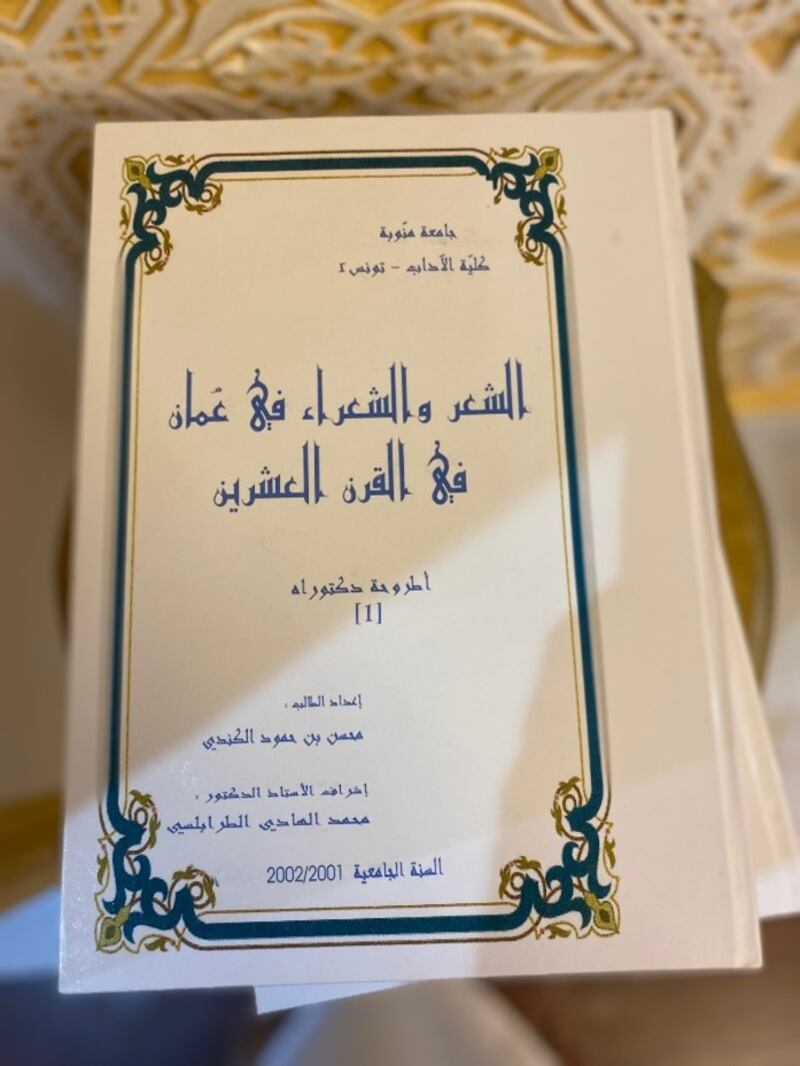 جامعة منّوبة
كليّة الآداب - تونس I
الشعر والشعراء في عُمان
في القرن العشرين
أطروحة دكتوراه
[1]
إعداد الطالب :
محسن بن حمود الكندي
إشراف الأستاذ الدكتور :
محمد الهادي الطرابلسي
السنة الجامعية 2002/2001